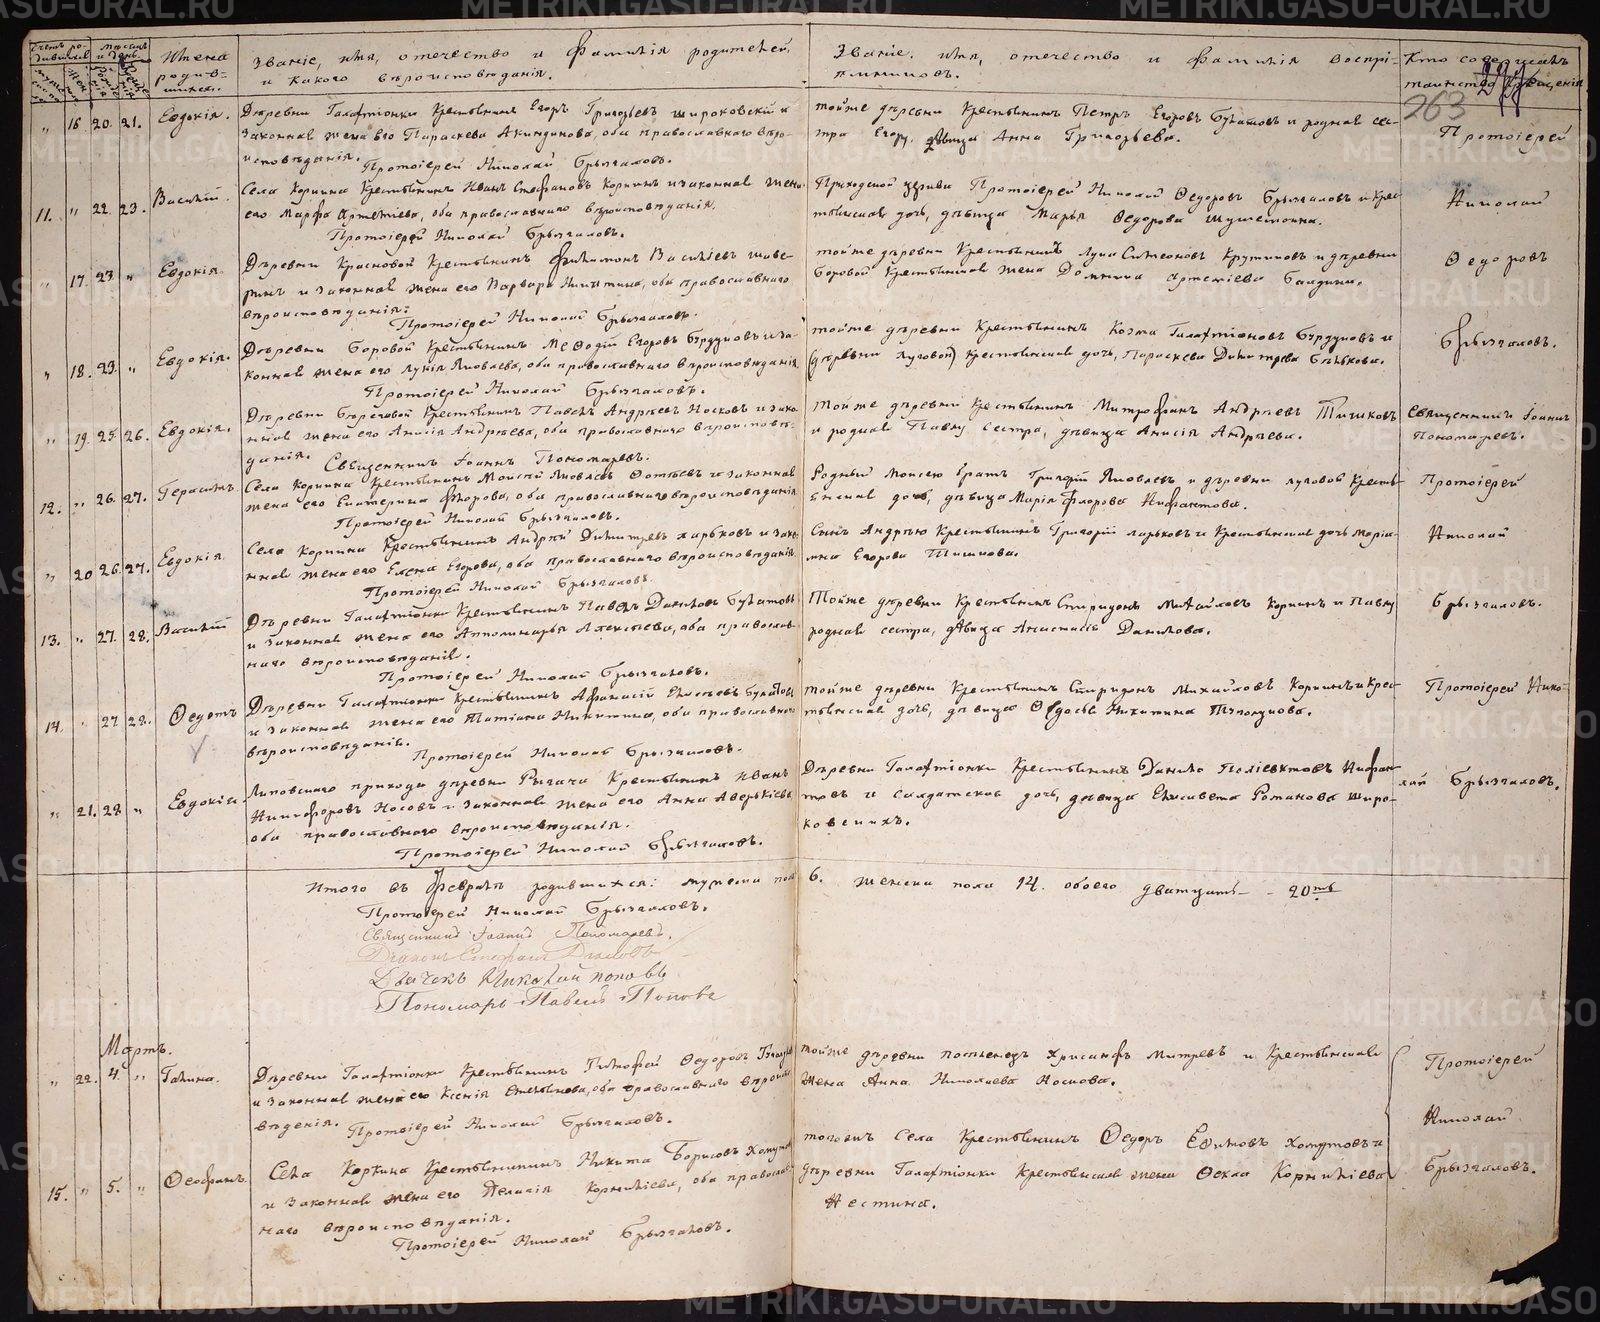 Имена родив-шихся.
Званіе, имя, отечество и фамилія родителей,
и какого вѣроисповѣданія.
Званіе, имя, отечество и фамилія воспрі-
емниковъ.
Кто совершалъ
таинство крещенія
263
" 16 20. 21. Евдокія.
Деревни Галактіонки Крестьянинъ Егоръ Григорьевъ Широковскій и
законная жена его Параскева Акиндинова, оба православнаго вѣро-
исповѣданія. Протоіерей Николай Брызгаловъ.
тойже деревни Крестьянинъ Петръ Егоровъ Булатовъ и родная сес-
тра Егору, дѣвица Анна Григорьева.
Протоіерей
11. " 22. 23. Василій.
Села Коркина Крестьянинъ Иванъ Стефановъ Коркинъ и законная жена
его Марфа Артеміева, оба православнаго вѣроисповѣданія.
Протоіерей Николай Брызгаловъ.
Приходской церкви Протоіерей Николай Ѳедоровъ Брызгаловъ и крес-
тьянская дочь, дѣвица Марья Ѳедорова
Николай
" 17. 23 " Евдокія.
Деревни Красновой Крестьянинъ Филимонъ Василіевъ
и законная жена его Варвара Никитина, оба православнаго
вѣроисповѣданія.
Протоіерей Николай Брызгаловъ.
тойже деревни Крестьянинъ Лука Симеоновъ Крутиковъ и деревни
Боровой Крестьянская жена Домника Артеміева Балдина.
Ѳедоровъ
" 18. 23. " Евдокія.
Деревни Боровой Крестьянинъ Меѳодій Егоровъ Бердуновъ и за-
конная жена его Лукія Яковлева, оба православнаго вѣроисповѣданія.
Протоіерей Николай Брызгаловъ.
тойже деревни Крестьянинъ Козма Галактіоновъ Бердуновъ и
(деревни Луговой) крестьянская дочь, Параскева Димитріева
Брызгаловъ.
" 19. 25. 26. Евдокія.
Деревни Береговой Крестьянинъ Павелъ Андреевъ Носковъ и зако-
нная жена его Анисія Андреева, оба православнаго вѣроисповѣ-
данія. Священникъ Іоаннъ Пономаревъ.
Той же деревни Крестьянинъ Митрофанъ Андреевъ
и родная Павлу сестра, дѣвица Анисія Андреева.
Священникъ Іоаннъ
Пономаревъ.
12. " 26. 27. Герасимъ.
Села Коркина Крестьянинъ Моисей Яковлевъ Ѳотѣевъ и законная
жена его Екатерина Флорова, оба православнаго вѣроисповѣданія.
Протоіерей Николай Брызгаловъ.
Родный Моисею братъ Григорій Яковлевъ и деревни Луговой Кресть-
янская дочь, дѣвица Марія Флорова Нифантова.
Протоіерей
" 20 26. 27. Евдокія
Села Коркина Крестьянинъ Андрей Димитріевъ Харьковъ и зако-
нная жена его Елена Егорова, оба православнаго вѣроисповѣданія.
Протоіерей Николай Брызгаловъ.
Сынъ Андрею Крестьянинъ Григорій Харьковъ и Крестьянская дочь Маріа-
мна Егорова
Николай
13. " 27. 28. Василій
Деревни Галактіонки Крестьянинъ Павелъ Даниловъ Булатовъ
и законная жена его Аполинарья Алексѣева, оба православ-
наго вѣроисповѣданія.
Протоіерей Николай Брызгаловъ.
Тойже деревни Крестьянинъ Спиридонъ Михайловъ Коркинъ и Павлу
родная сестра, дѣвица Анастасія Данилова.
Брызгаловъ.
14. " 27 28. Ѳедотъ
Деревни Галактіонки Крестьянинъ Афанасій Елисѣевъ Булатовъ
и законная жена его Татіана Никитина, оба православнаго
вѣроисповѣданія.
Протоіерей Николай Брызгаловъ.
тойже деревни Крестьянинъ Спиридонъ Михайловъ Коркинъ и Крес-
тьянская дочь, дѣвица Ѳедосья Никитина
Протоіерей Нико-
" 21. 28. " Евдокія.
Липовскаго прихода деревни Рычачи Крестьянинъ Иванъ
Никифоровъ Носовъ и законная жена его Анна Аверькіева,
оба православнаго вѣроисповѣданія.
Протоіерей Николай Брызгаловъ.
Деревни Галактіонки Крестьянинъ Данило Поліевктовъ Нифан-
товъ и Солдатская дочь, дѣвица Елисавета Романова Широ-
ковскихъ.
лай Брызгаловъ.
Итого въ Февралѣ родившихся: мужеска пола 6. женска пола 14. обоего дватцать - 20ть
Протоіерей Николай Брызгаловъ.
Священникъ Іоаннъ Пономаревъ.
Діаконъ Стефанъ
Дьячекъ Николай Поповъ
Пономарь Павелъ Поповъ
Мартъ.
" 22. 4. " Галина.
Деревни Галактіонки Крестьянинъ Тимофей Ѳедоровъ
и законная жена его Ксенія Емельянова, оба православнаго вѣроиспо-
вѣденія. Протоіерей Николай Брызгаловъ.
тойже деревни поселенецъ Хрисанфъ Митревъ и Крестьянская
жена Анна Николаева Носкова.
Протоіерей
Николай
15. " 5. " Ѳеофанъ.
Села Коркина Крестьянинъ Никита Борисовъ Хомутовъ
и законная жена его Пелагія Корнилiева, оба православ-
наго вѣроисповѣданія.
Протоіерей Николай Брызгаловъ.
тогожъ Села Крестьянинъ Ѳедоръ Ефимовъ Хомутовъ и
деревни Галактіонки Крестьянская жена Ѳекла Корниліева
Нестина.
Брызгаловъ.
METRIKI.GASO-URAL.RU